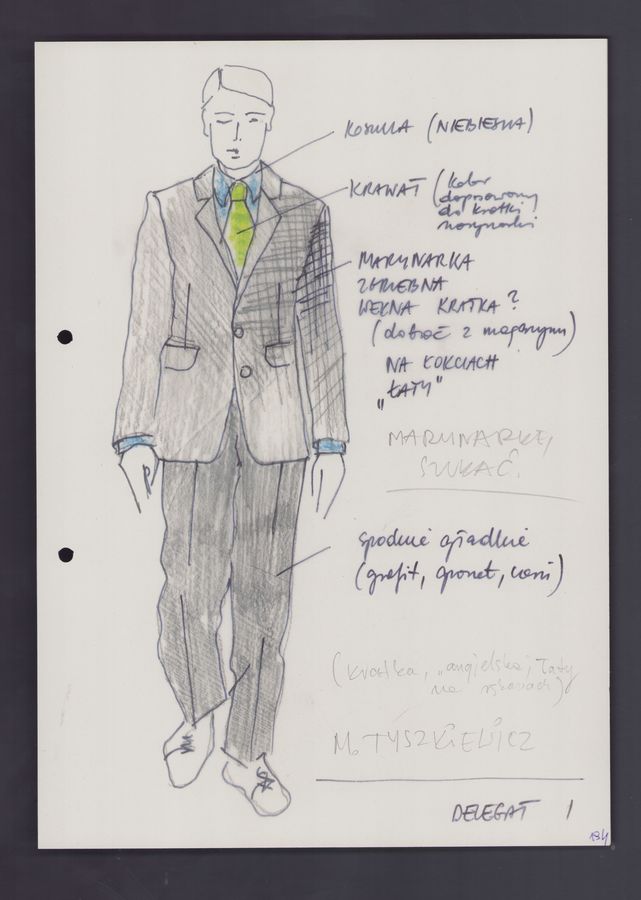 KOSZULA (NIEBIESKA)
KRAWAT (kolor
dopasowany
do kratki
marynarki
MARYNARKA
ZGRZEBNA
WEŁNA KRATKA?
(dobrać z magazynu)
NA ŁOKCIACH
"ŁATY"
MARYNARKĘ,
SZUKAĆ.
spodnie gładkie
(grafit, granat,
(kratka, „angielska”, łaty
na rękawach)
M. TYSZKIEWICZ
DELEGAT 1
194